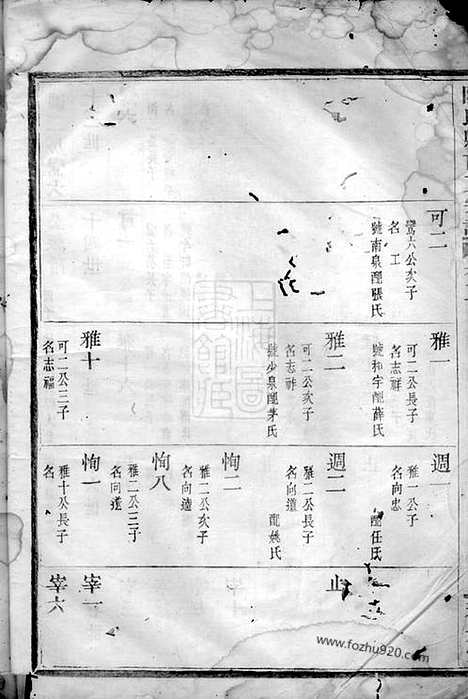 可二
鸞六公次子
名工
號南泉配張氏
雅一
可二公長子
名志祥
號和宇配薛氏
雅二
可二公次子
名志祚
號少泉配茅氏
雅十
可二公三子
名志福
週一
雅一公子
名向忠
配任氏
週二
雅二公長子
名向道
配姚氏
恂二
雅二公次子
名向遠
恂八
雅二公三子
名向達
恂一
雅十公長子
名
止
宰一
宰六
www.fozhu920.com